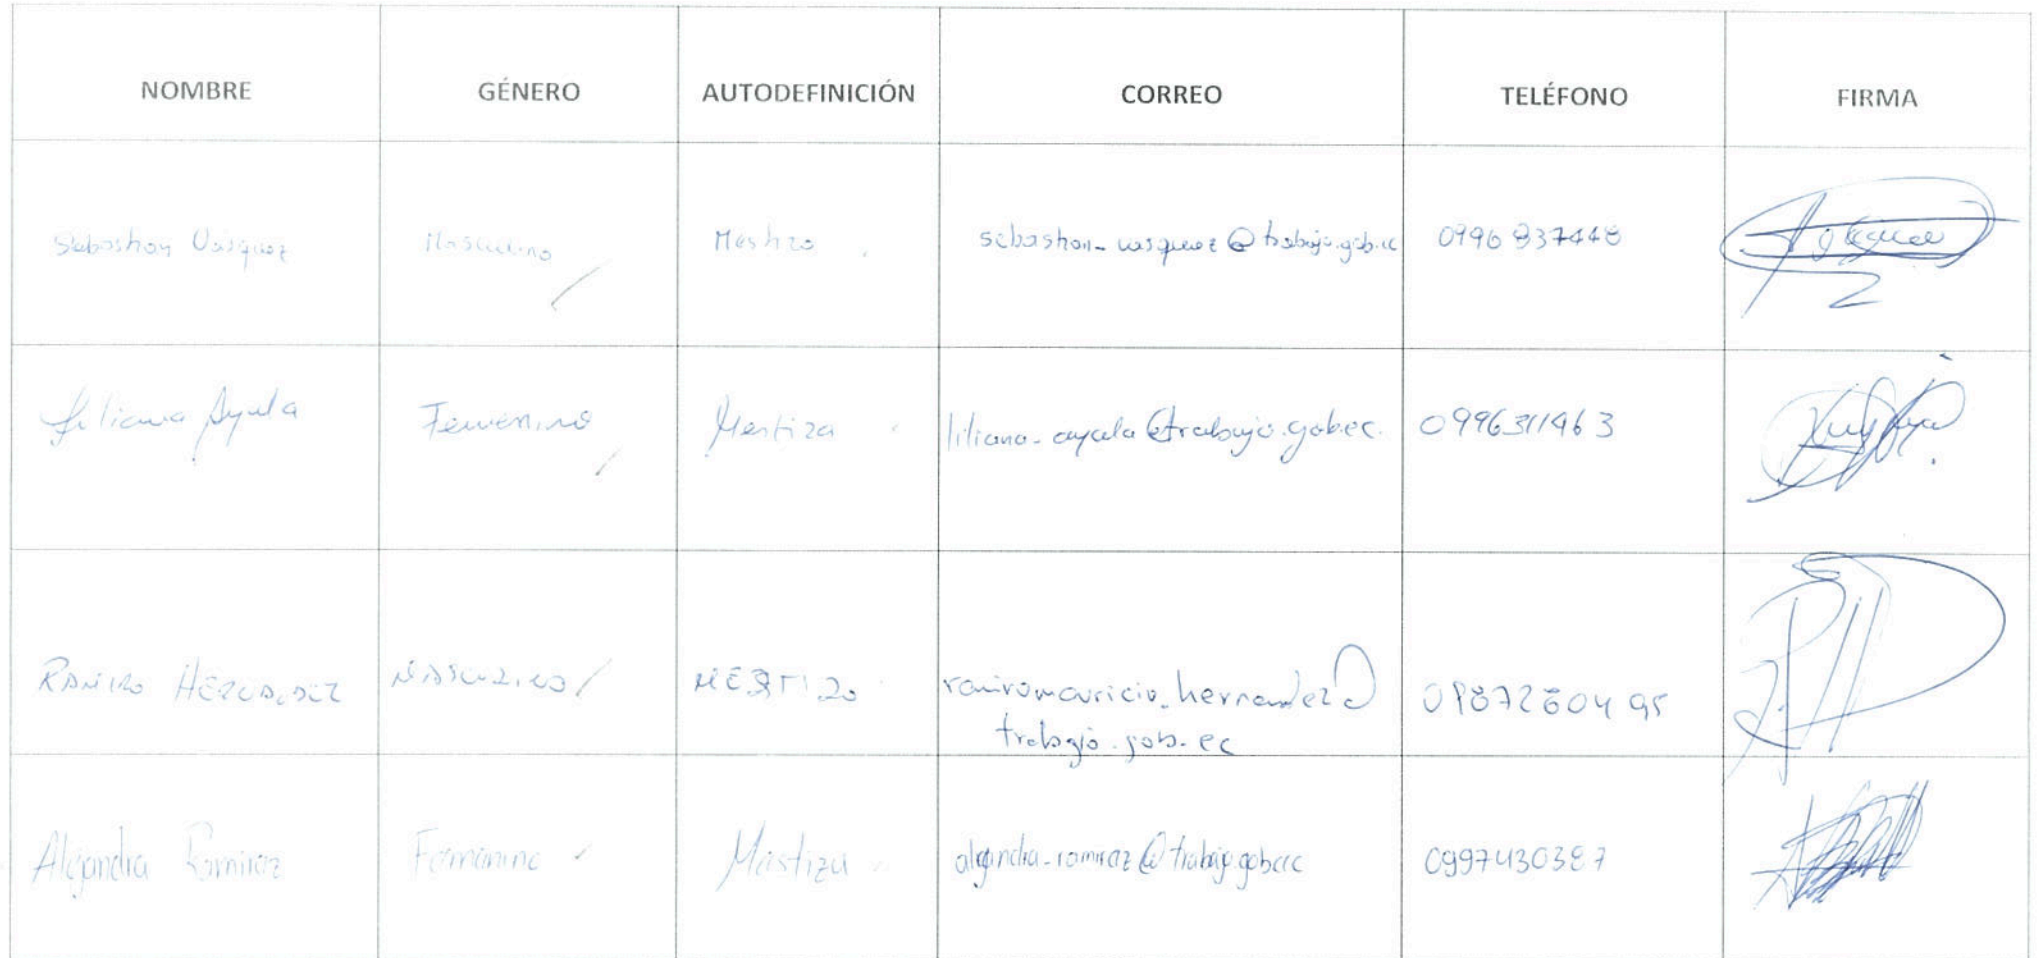 NOMBRE GÉNERO AUTODEFINICIÓN CORREO TELÉFONO FIRMA
Sebastian Vásquez Masculino Mestizo sebastian_vasquez@trabajo.gob.ec 0996937448
Liliana Ayala Femenino Mestiza liliana_ayala@trabajo.gob.ec. 0996311463
RAMIRO HERNANDEZ MASCULINO MESTIZO ramiromauricio_hernandez@ 0987280495
trabajo.gob.ec
Alejandra Ramirez Femenino Mestiza alejandra_ramirez@trabajo.gob.ec 0997430387